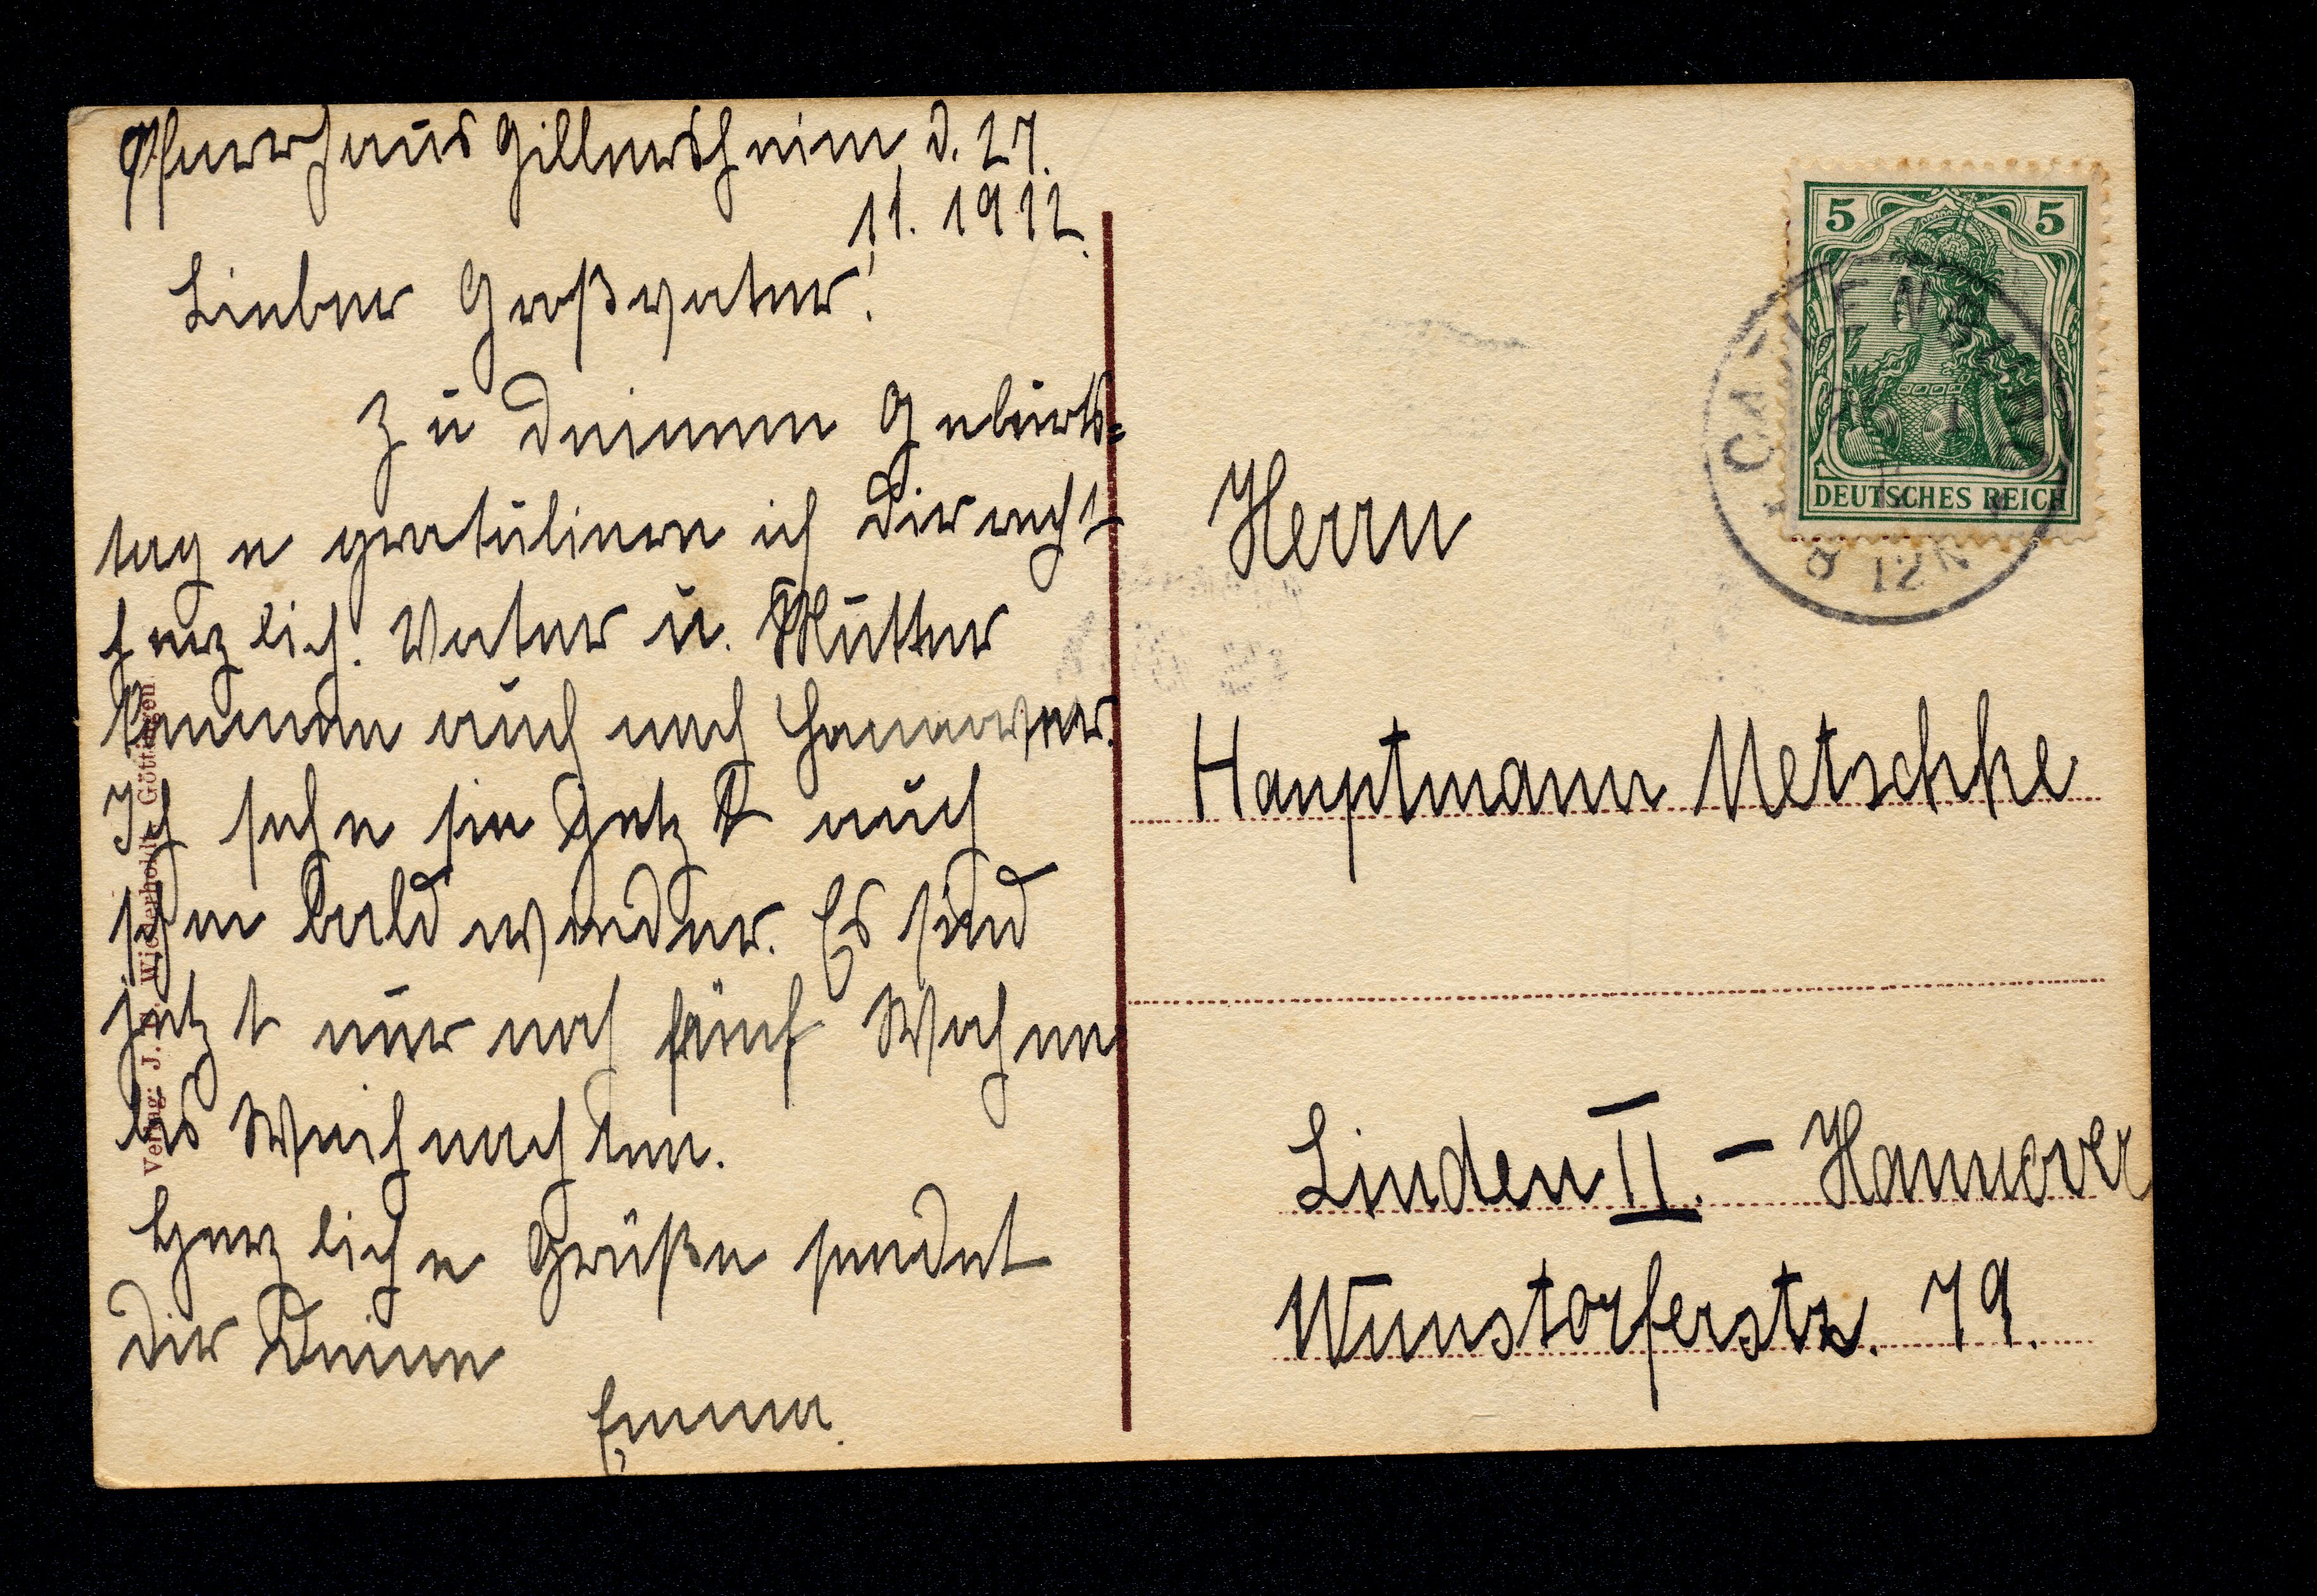 Pfarrhaus Gillersheim d. 27.
11. 1912.
Lieber Großvater!
Zu Deinem Geburts=
tage gratuliere ich Dir recht
herzlich. Vater u. Mutter
kommen auch nach Hannover.
Ich sehe sie jetzt auch
schon bald wieder. Es sind
jetzt nur noch fünf Wochen
bis Weihnachten.
Herzliche Grüße sendet
Dir Deine
Emma.
Verlag: J. Wiederholdt Göttingen
5 5
DEUTSCHES REICH
Herrn
Hauptmann Metschke
Linden II. – Hannover
Wunstorferstr. 79.